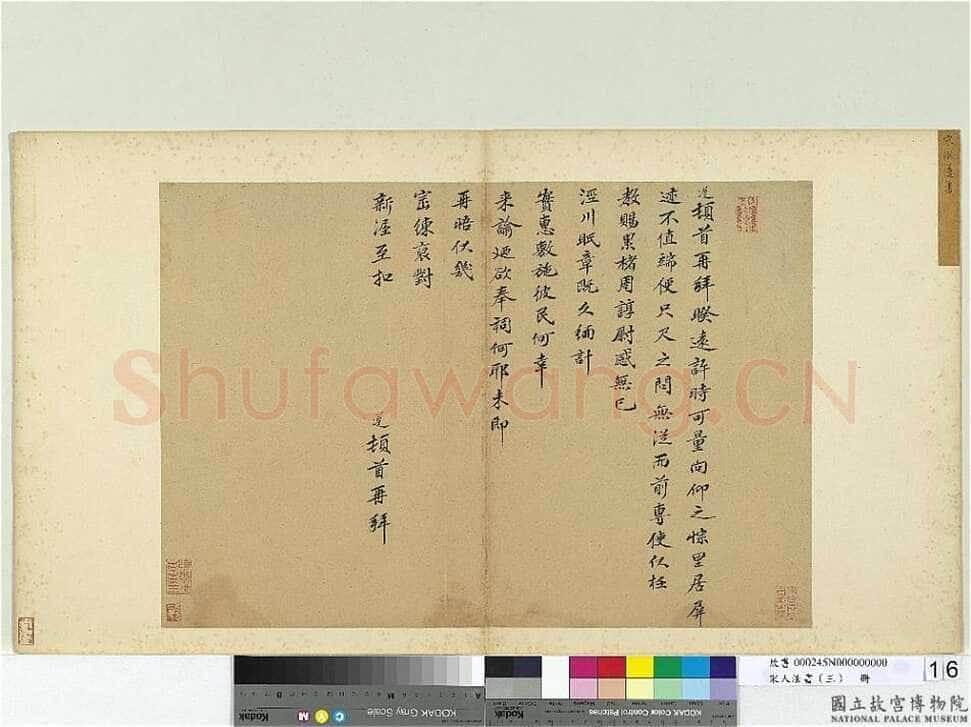 頓首再拜睽遠許時可量向仰之悰里居屏
迹不值端便只尺之問無從而前專使似枉
教賜累楮周諄尉感無已
涇川眂章既久緬計
實惠敷施彼民何幸
来諭廼欲奉祠何耶未即
再晤伏幾
崈練裒對
新渥至扣
頓首再拜
Shufawang.CN
KODAK Gray Scale
Kodak
C Y M
KODAK Color Control Patches
故書 000245N000000000
宋人法書(三) 冊
16
國立故宮博物院
NATIONAL PALACE MUSEUM